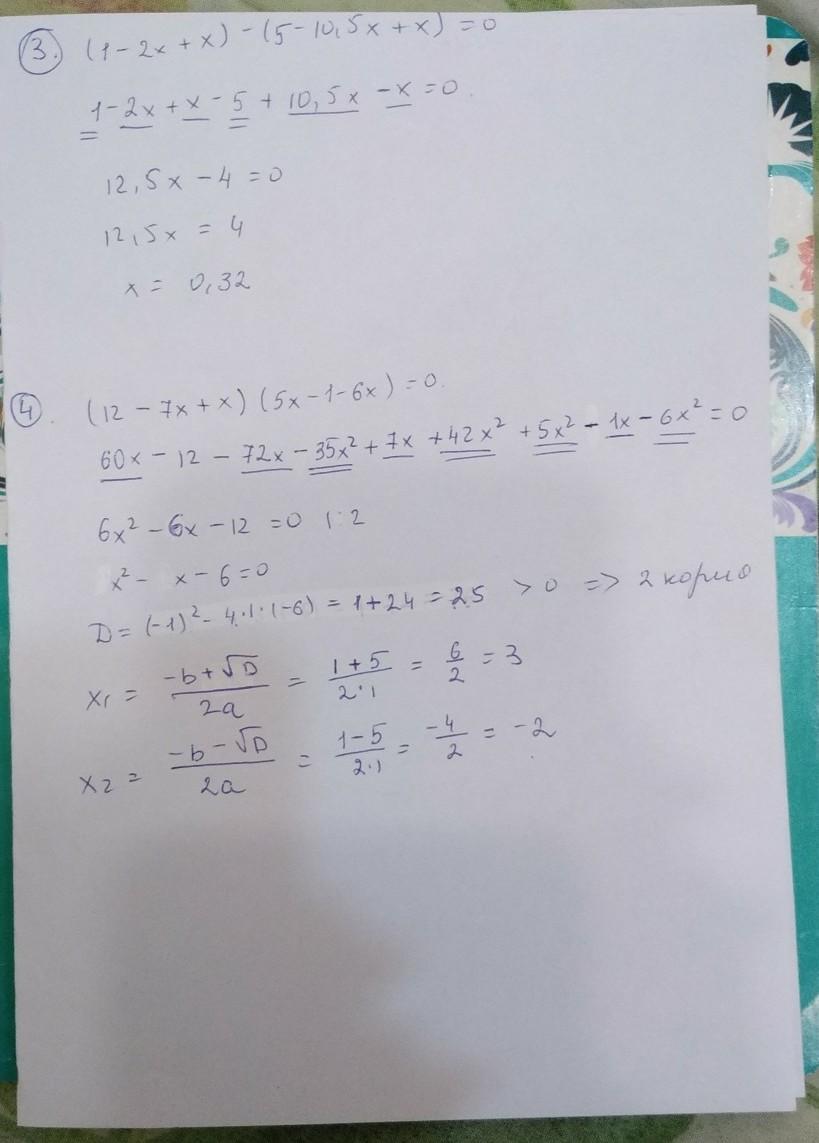 3. (1 - 2x + x) - (5 - 10,5x + x) = 0
1 - 2x + x - 5 + 10,5x - x = 0.
12,5x - 4 = 0
12,5x = 4
x = 0,32
4. (12 - 7x + x) (5x - 1 - 6x) = 0.
60x - 12 - 72x - 35x² + 7x + 42x² + 5x² - 1x - 6x² = 0
6x² - 6x - 12 = 0 |: 2
x² - x - 6 = 0
D = (-1)² - 4·1·(-6) = 1 + 24 = 25 > 0 => 2 корня
x₁ = (-b + √D)/2a = (1 + 5)/(2·1) = 6/2 = 3
x₂ = (-b - √D)/2a = (1 - 5)/(2·1) = -4/2 = -2